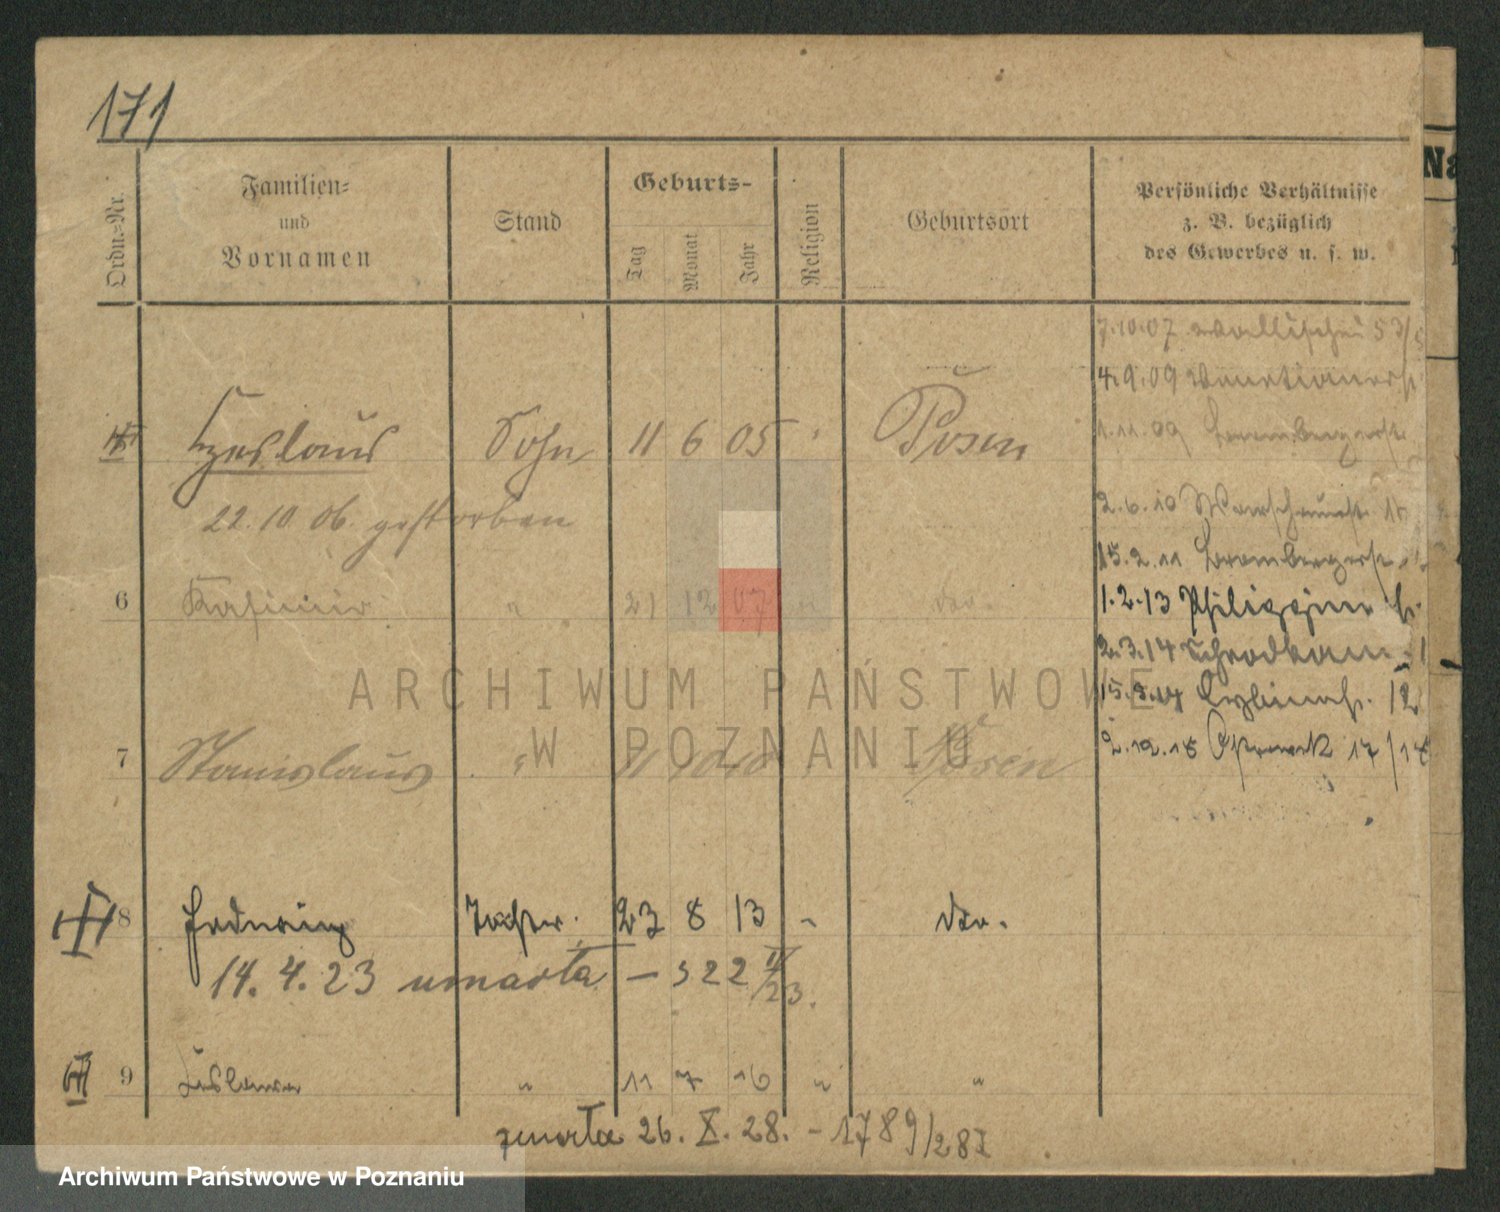 171
Ordn.-Nr.
Familien-
und
Vornamen
Stand
Geburts-
Tag
Monat
Jahr
Religion
Geburtsort
Persönliche Verhältnisse
z. B. bezüglich
des Gewerbes u. s. w.
Na
7.10.07 Wallischei 53/
4.9.09 Venetianerst
Czeslaus Sohn 11 6 05 Posen
1.11.09 Brombergerst
22.10.06. gestorben
2.6.10
15.2.11 Brombergerst.
6 Kasimir " 21 12 07 " dto.
1.2.13
2.3.14 Schrodkam
15.9.14
7 Stanislaus " Posen
2.12.18 17/18
8 Hedwig Tochter. 23 8 13 " dto.
14.4.23 umarła – 522 II/23.
9 " 11 7 16 " "
zmarła 26. X. 28. – 1789/28I
ARCHIWUM PAŃSTWOWE
W POZNANIU
Archiwum Państwowe w Poznaniu